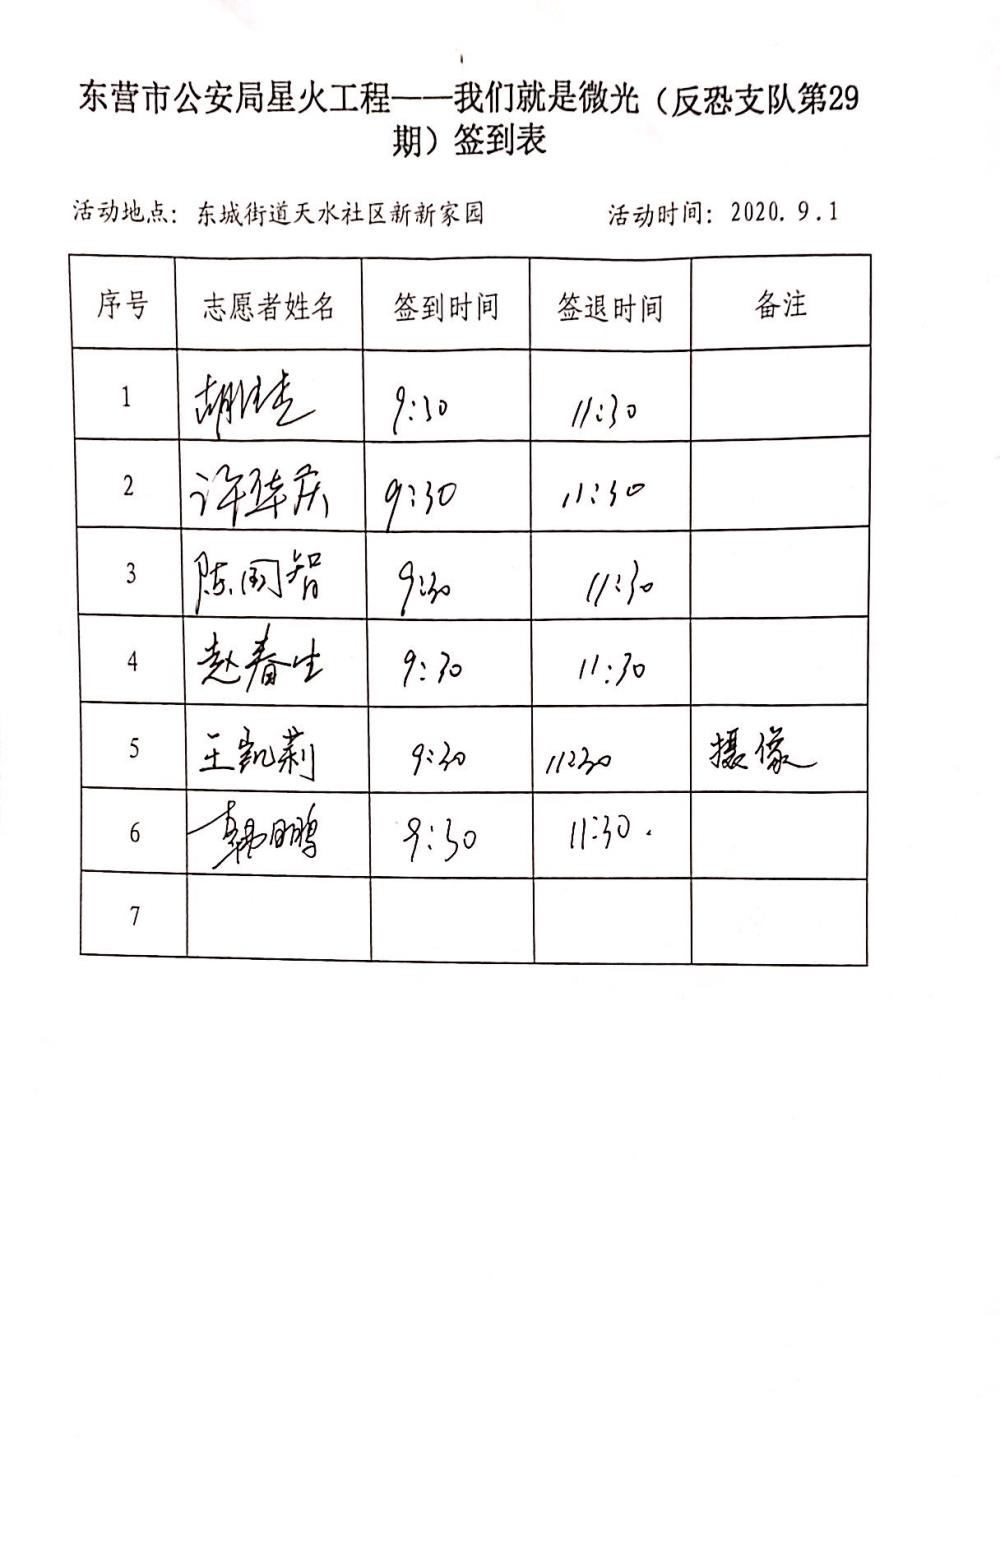 东营市公安局星火工程——我们就是微光（反恐支队第29
期）签到表
活动地点：东城街道天水社区新新家园 活动时间：2020.9.1
序号 志愿者姓名 签到时间 签退时间 备注
1 9:30 11:30
2 9:30 11:30
3 陈国智 9:30 11:30
4 赵春生 9:30 11:30
5 王凯莉 9:30 11:30 摄像
6 韩鹏 9:30 11:30.
7